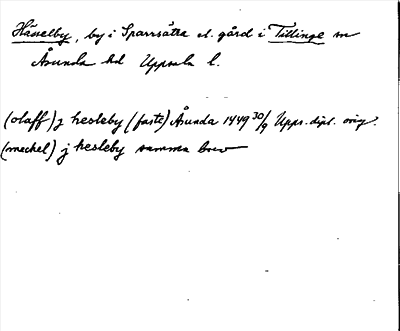 Hässelby, by i Sparrsätra el. gård i Tillinge sn
Åsunda hd Uppsala l.
(olaff) j hesleby (faste) Åsunda 1449 30/9 Upps. dipl. orig.
(meckel) j hesleby samma brev